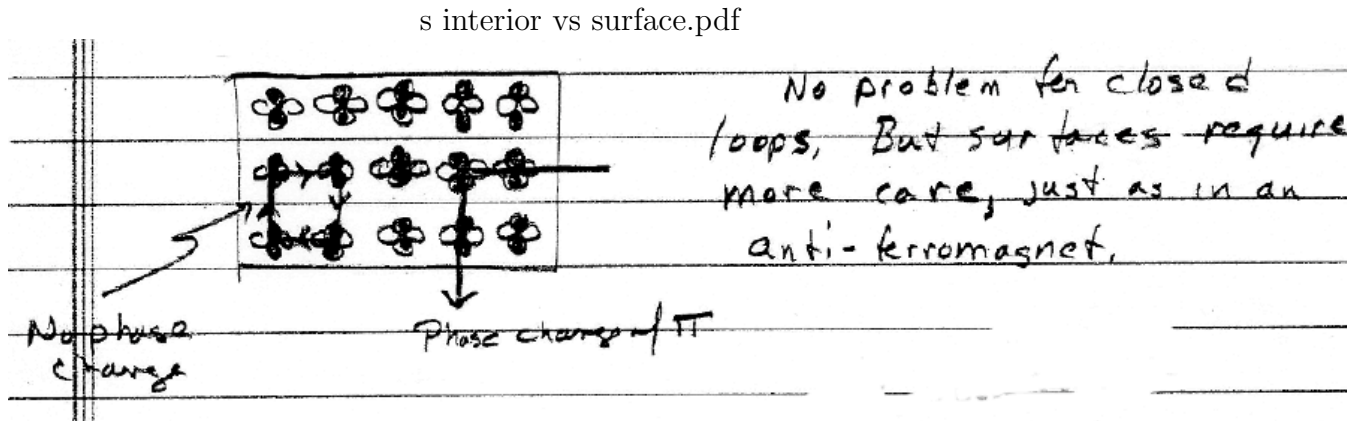 s interior vs surface.pdf
No problem for closed
loops, But surfaces require
more care, just as in an
anti-ferromagnet.
No phase
change
Phase change of π